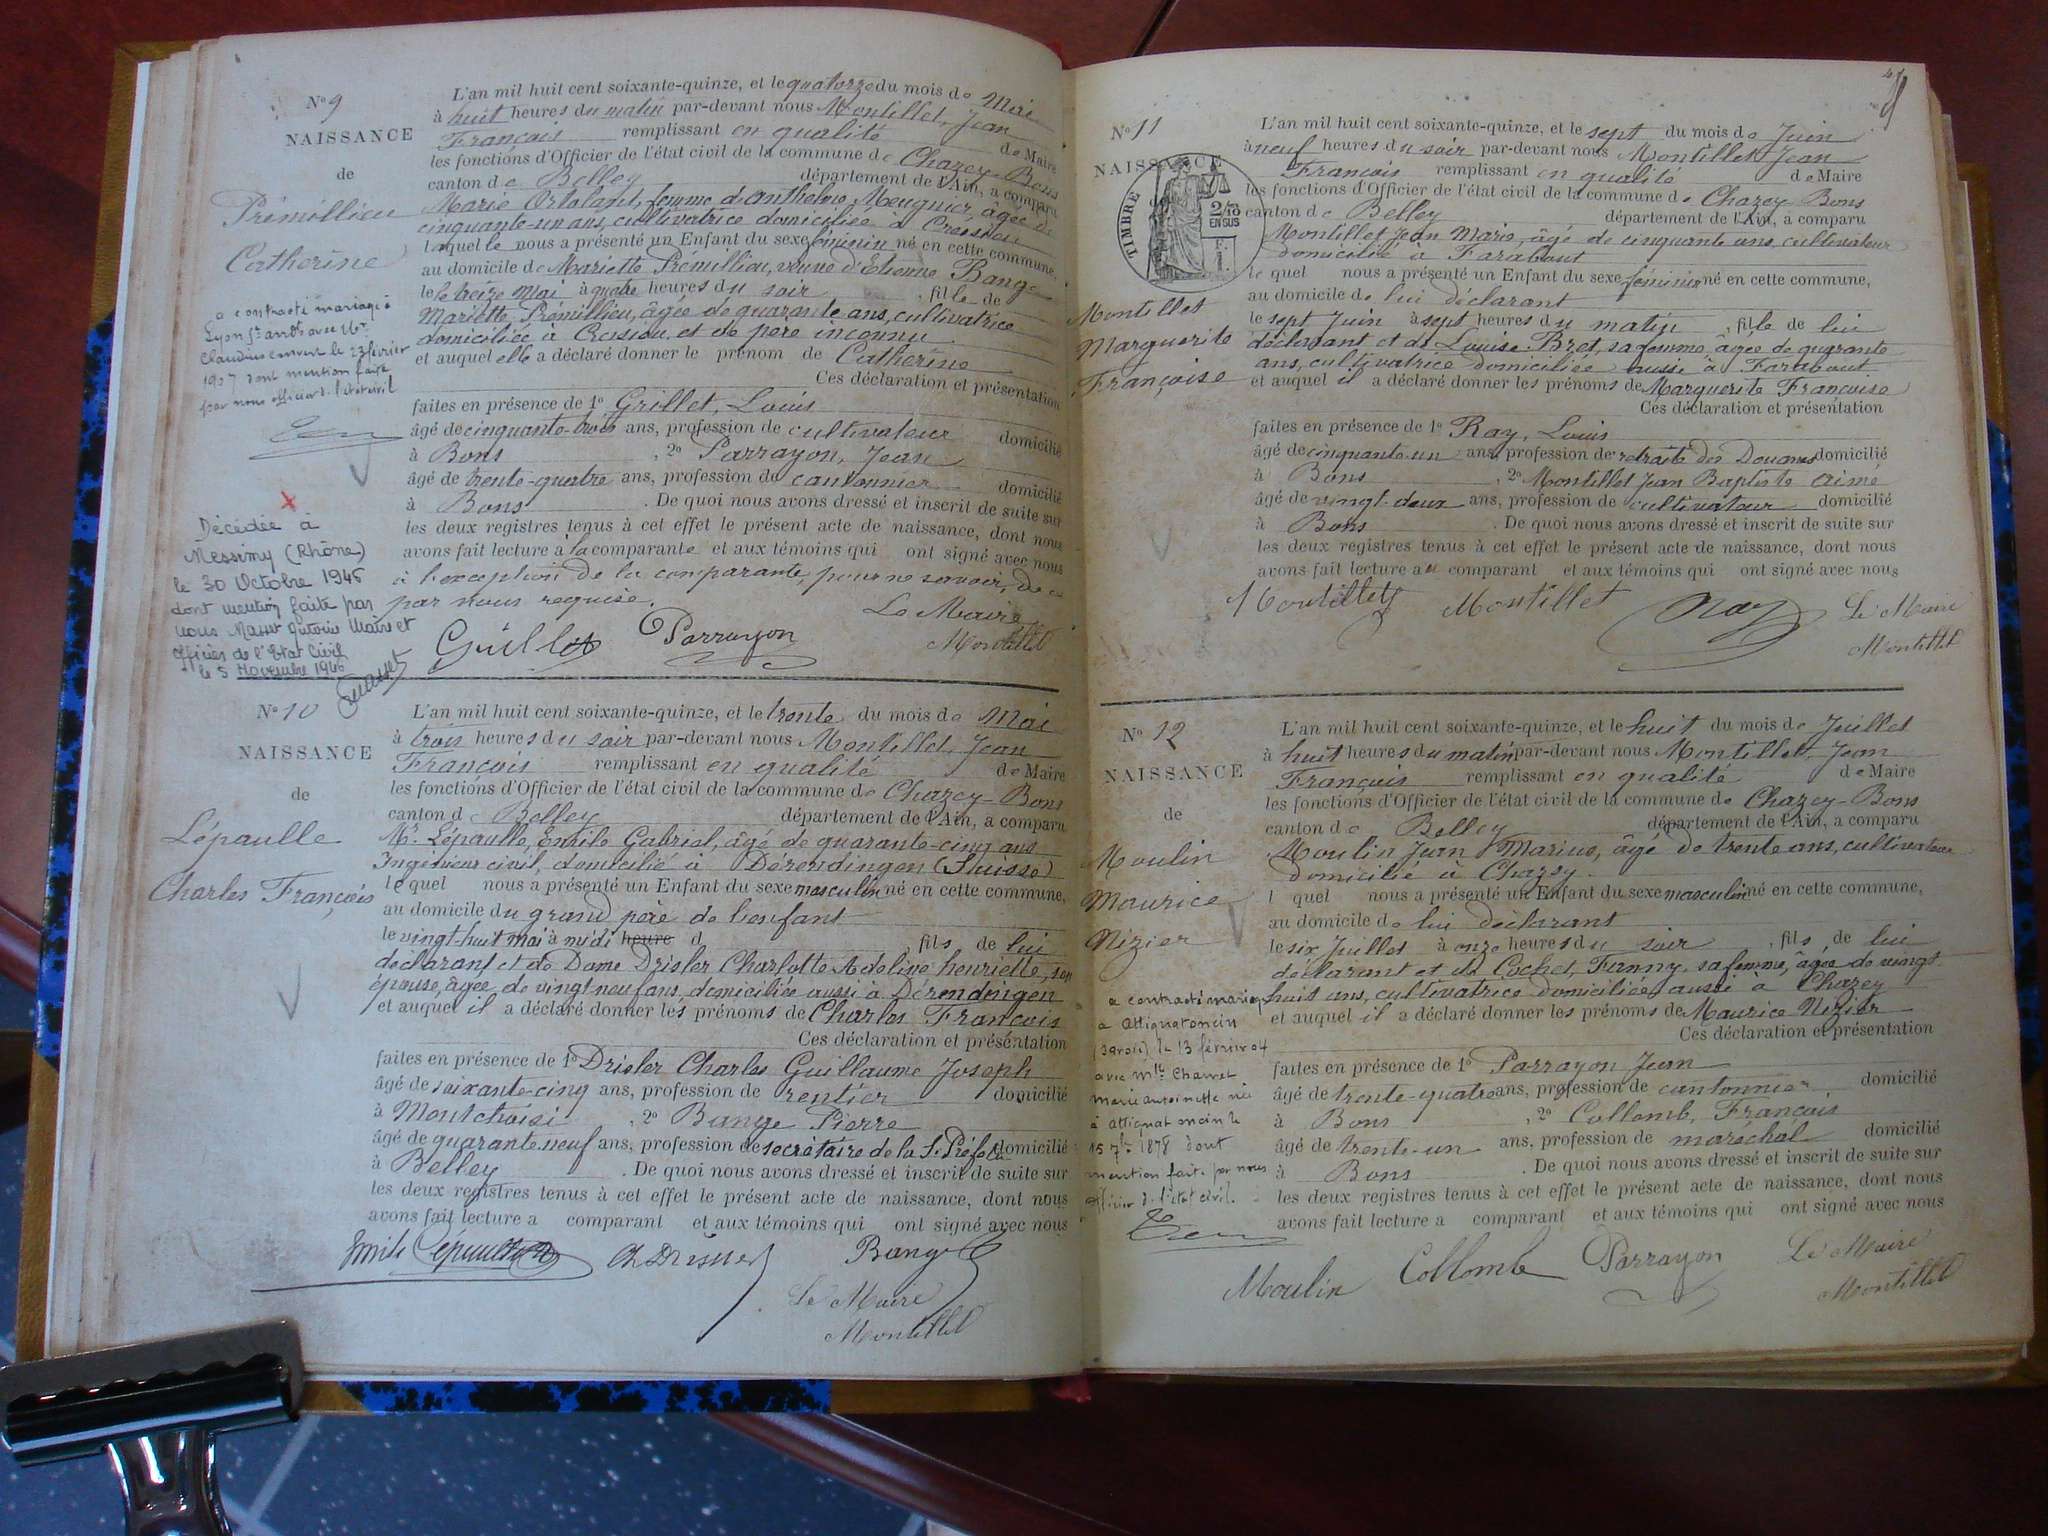 N° 9
NAISSANCE
de
Prémillieu
Catherine
a contracté mariage à
Lyon
Claudius le 23 février
1907 dont mention faite
par nous officier de l'état civil
Décédée à
Messimy (Rhône)
le 30 Octobre 1946
dont mention faite par
nous Masset Antoine Maire et
Officier de l'Etat Civil
le 5 Novembre 1946
L'an mil huit cent soixante-quinze, et le quatorze du mois de Mai
à huit heures du matin par-devant nous Montillet, Jean
François remplissant en qualité de Maire
les fonctions d'Officier de l'état civil de la commune de Chazey-Bons
canton de Belley département de l'Ain, a comparu
Marie Ortoland, femme d'anthelme Meugnier, âgée de
cinquante-un ans, cultivatrice domiciliée à Cressieu
laquelle nous a présenté un Enfant du sexe féminin né en cette commune,
au domicile de Mariette Prémillieu, veuve d'Etienne Bange
le le treize Mai à quatre heures du soir, fille de
Mariette Prémillieu, âgée de quarante ans, cultivatrice
domiciliée à Cressieu et de père inconnu.
et auquel elle a déclaré donner le prénom de Catherine
Ces déclaration et présentation
faites en présence de 1° Grillet, Louis
âgé de cinquante-trois ans, profession de cultivateur domicilié
à Bons, 2° Parrayon, Jean
âgé de trente-quatre ans, profession de cantonnier domicilié
à Bons. De quoi nous avons dressé et inscrit de suite sur
les deux registres tenus à cet effet le présent acte de naissance, dont nous
avons fait lecture à la comparante et aux témoins qui ont signé avec nous
à l'exception de la comparante, pour ne savoir, de ce
par nous requise.
Le Maire
Grillet Parrayon Montillet
N° 10
NAISSANCE
de
Lépaulle
Charles François
L'an mil huit cent soixante-quinze, et le trente du mois de Mai
à trois heures du soir par-devant nous Montillet, Jean
François remplissant en qualité de Maire
les fonctions d'Officier de l'état civil de la commune de Chazey-Bons
canton de Belley département de l'Ain, a comparu
Mr. Lépaulle, Emile Gabriel, âgé de quarante-cinq ans
Ingénieur civil, domicilié à Dérendingen (Suisse)
lequel nous a présenté un Enfant du sexe masculin né en cette commune,
au domicile du grand père de l'enfant
le vingt-huit mai à midi heure d, fils de lui
déclarant et de Dame Drisler Charlotte Adeline henriette, son
épouse, âgée de vingt neuf ans, domiciliée aussi à Dérendingen
et auquel il a déclaré donner les prénoms de Charles François
Ces déclaration et présentation
faites en présence de 1° Drisler Charles Guillaume Joseph
âgé de soixante-cinq ans, profession de rentier domicilié
à Montchoisi, 2° Bange Pierre
âgé de quarante-neuf ans, profession de secrétaire de la S. Préfect. domicilié
à Belley. De quoi nous avons dressé et inscrit de suite sur
les deux registres tenus à cet effet le présent acte de naissance, dont nous
avons fait lecture a comparant et aux témoins qui ont signé avec nous
Emile Lepaulle Ch Drisler Bange
Le Maire
Montillet
N° 11
NAISSANCE
TIMBRE
2/10
EN SUS
Montillet
Marguerite
Françoise
L'an mil huit cent soixante-quinze, et le sept du mois de Juin
à neuf heures du soir par-devant nous Montillet Jean
François remplissant en qualité de Maire
les fonctions d'Officier de l'état civil de la commune de Chazey Bons
canton de Belley département de l'Ain, a comparu
Montillet Jean Marie, âgé de cinquante ans, cultivateur
domicilié à Farabout
lequel nous a présenté un Enfant du sexe féminin né en cette commune,
au domicile de lui déclarant
le sept Juin à sept heures du matin, fille de lui
déclarant et de Louise Bret, sa femme âgée de quarante
ans, cultivatrice domiciliée aussi à Farabout
et auquel il a déclaré donner les prénoms de Marguerite Françoise
Ces déclaration et présentation
faites en présence de 1° Ray, Louis
âgé de cinquante-un ans, profession de retraité des Douanes domicilié
à Bons, 2° Montillet Jean Baptiste Aimé
âgé de vingt-deux ans, profession de cultivateur domicilié
à Bons. De quoi nous avons dressé et inscrit de suite sur
les deux registres tenus à cet effet le présent acte de naissance, dont nous
avons fait lecture au comparant et aux témoins qui ont signé avec nous
Montillet Montillet Ray Le Maire
Montillet
N° 12
NAISSANCE
de
Moulin
Maurice
Nizier
a contracté mariage
à Attignat oncin
(Savoie) le 13 février 04
avec Mlle
Marie antoinette née
à Attignat oncin le
15 7bre 1878 dont
mention faite par nous
officier de l'état civil.
L'an mil huit cent soixante-quinze, et le huit du mois de Juillet
à huit heures du matin par-devant nous Montillet, Jean
François remplissant en qualité de Maire
les fonctions d'Officier de l'état civil de la commune de Chazey-Bons
canton de Belley département de l'Ain, a comparu
Moulin Jean Marius, âgé de trente ans, cultivateur
domicilié à Chazey.
l quel nous a présenté un Enfant du sexe masculin né en cette commune,
au domicile de lui déclarant
le six Juillet à onze heures du soir, fils de lui
déclarant et de Cochet, Fanny, sa femme, âgée de vingt
huit ans, cultivatrice domiciliée aussi à Chazey
et auquel il a déclaré donner les prénoms de Maurice Nizier
Ces déclaration et présentation
faites en présence de 1° Parrayon Jean
âgé de trente-quatre ans, profession de cantonnier domicilié
à Bons, 2° Collomb, François
âgé de trente-un ans, profession de maréchal domicilié
à Bons. De quoi nous avons dressé et inscrit de suite sur
les deux registres tenus à cet effet le présent acte de naissance, dont nous
avons fait lecture a comparant et aux témoins qui ont signé avec nous
Moulin Collomb Parrayon Le Maire
Montillet